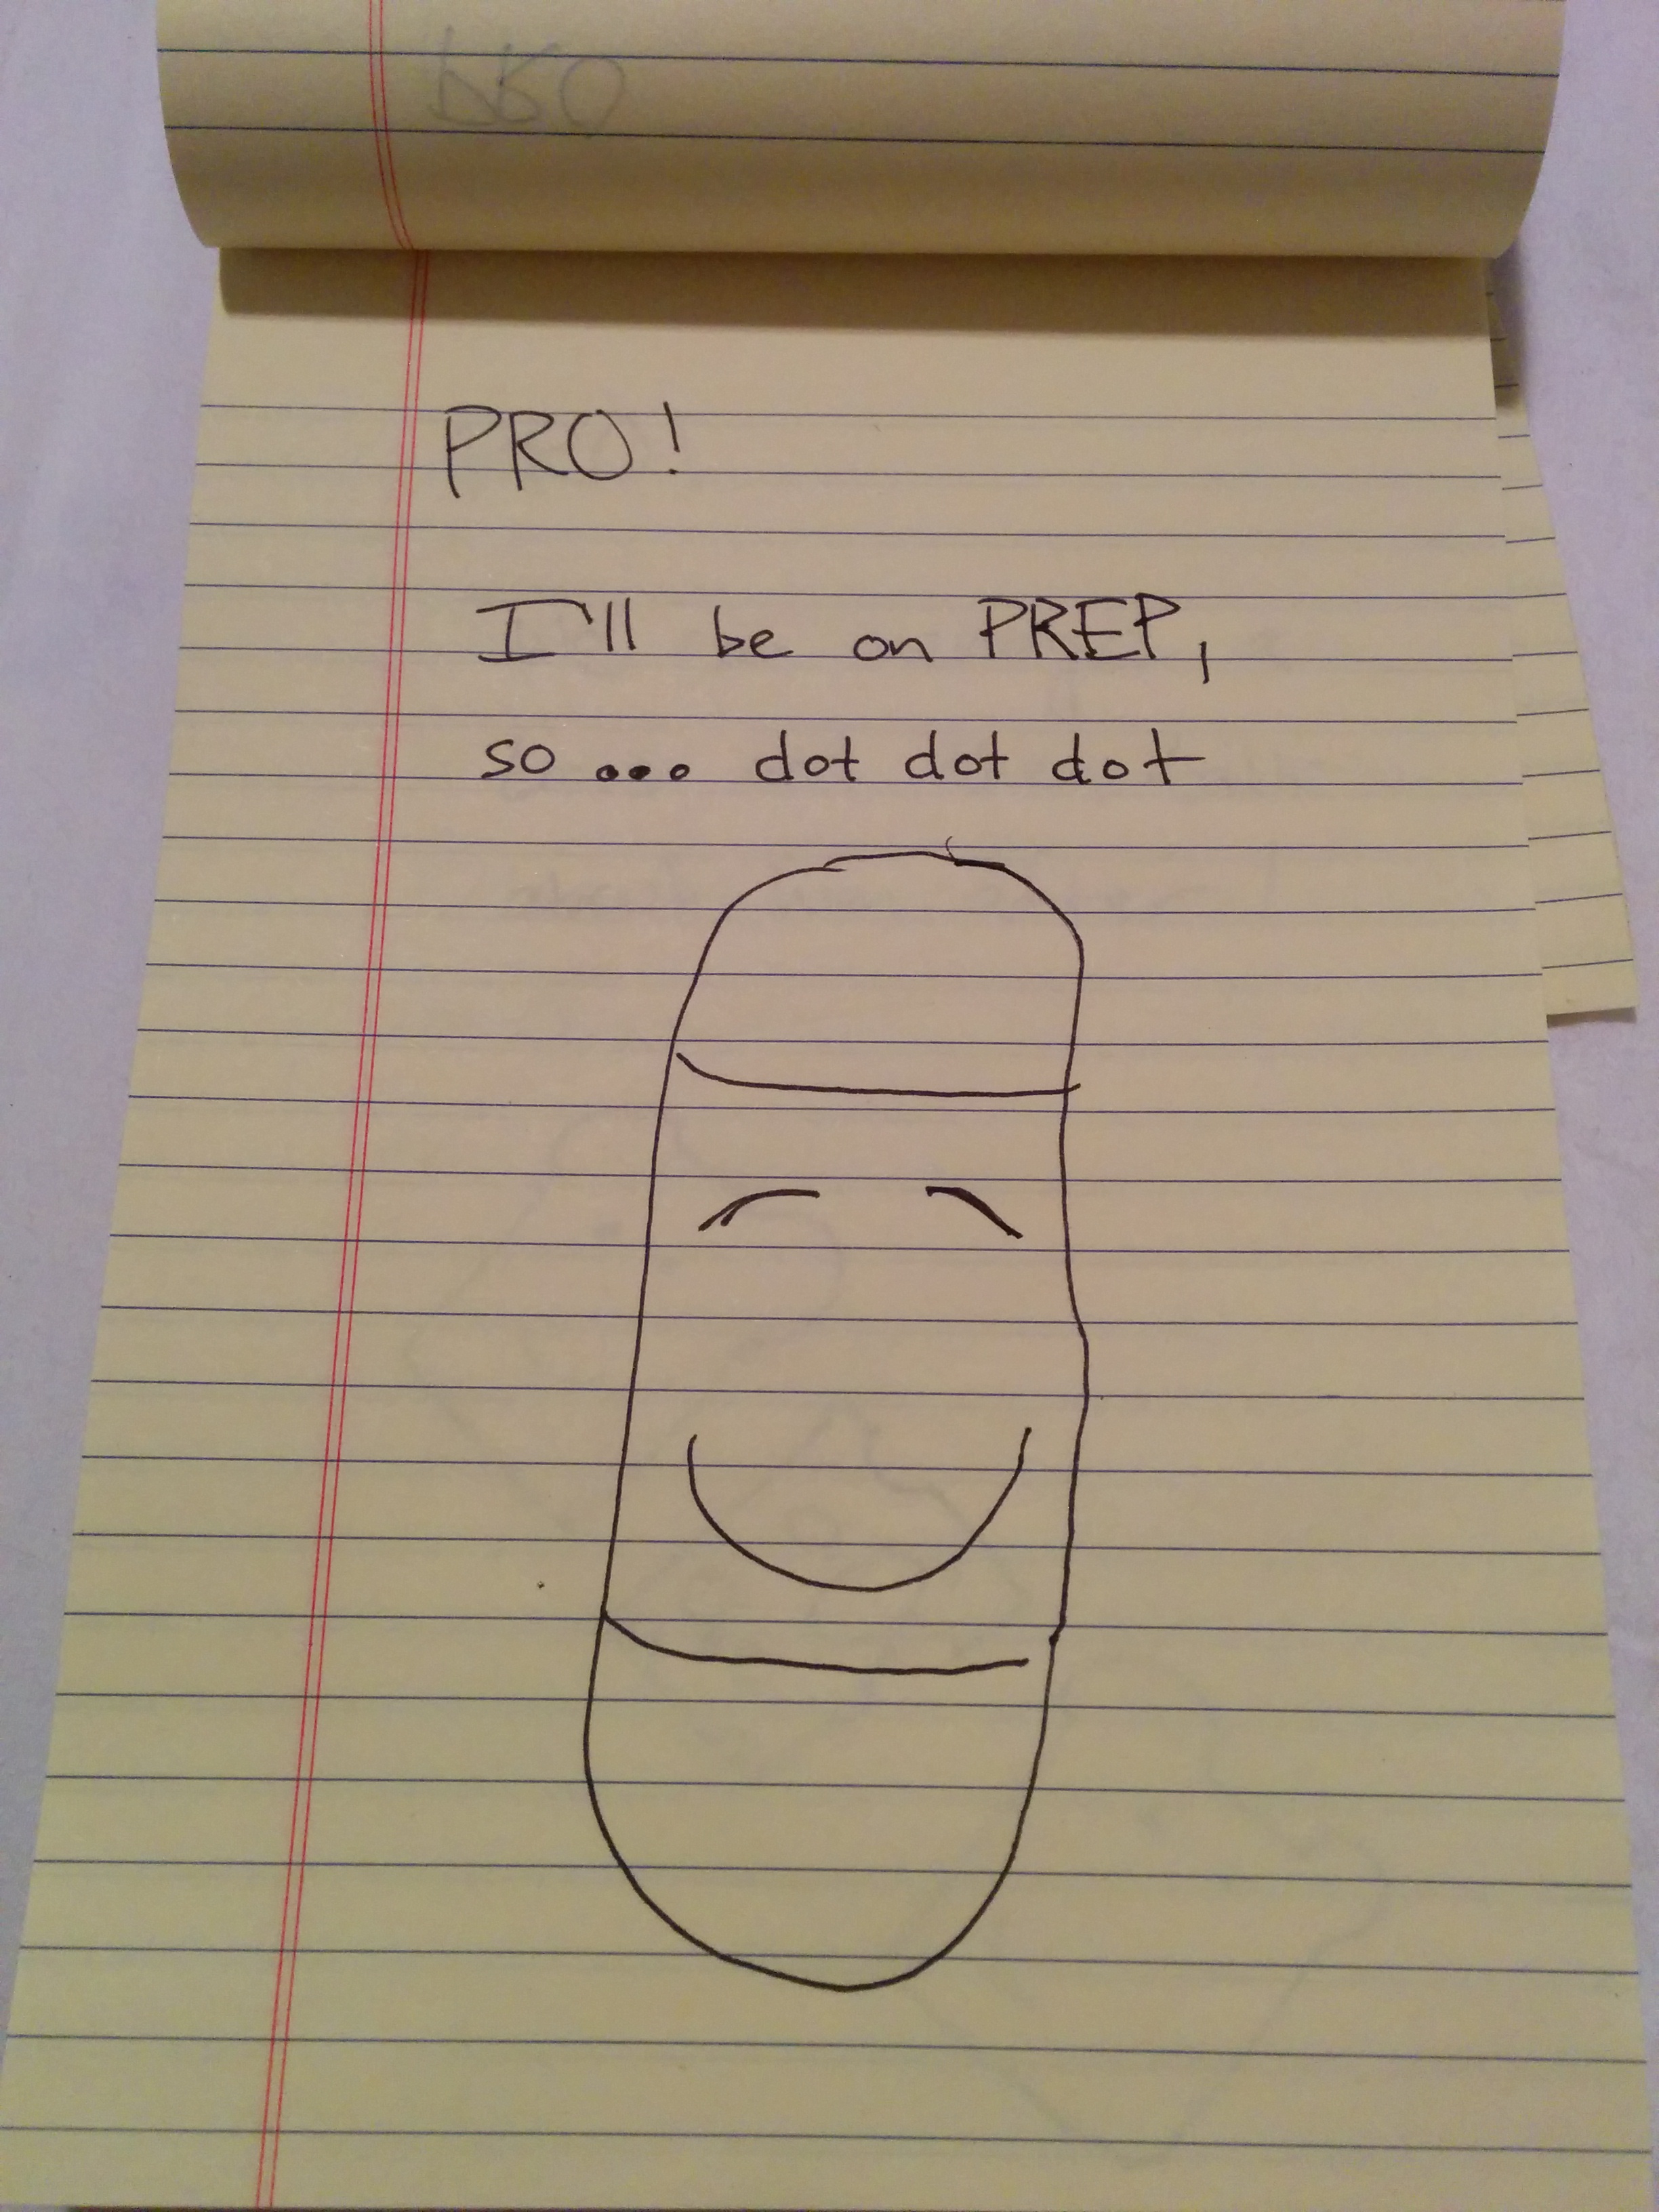 PRO!
I'll be on PREP,
so... dot dot dot